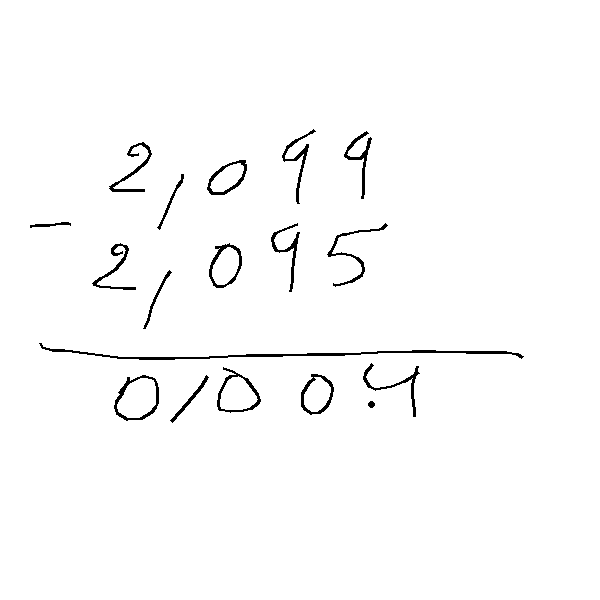 2,099
- 2,095
0,00.4